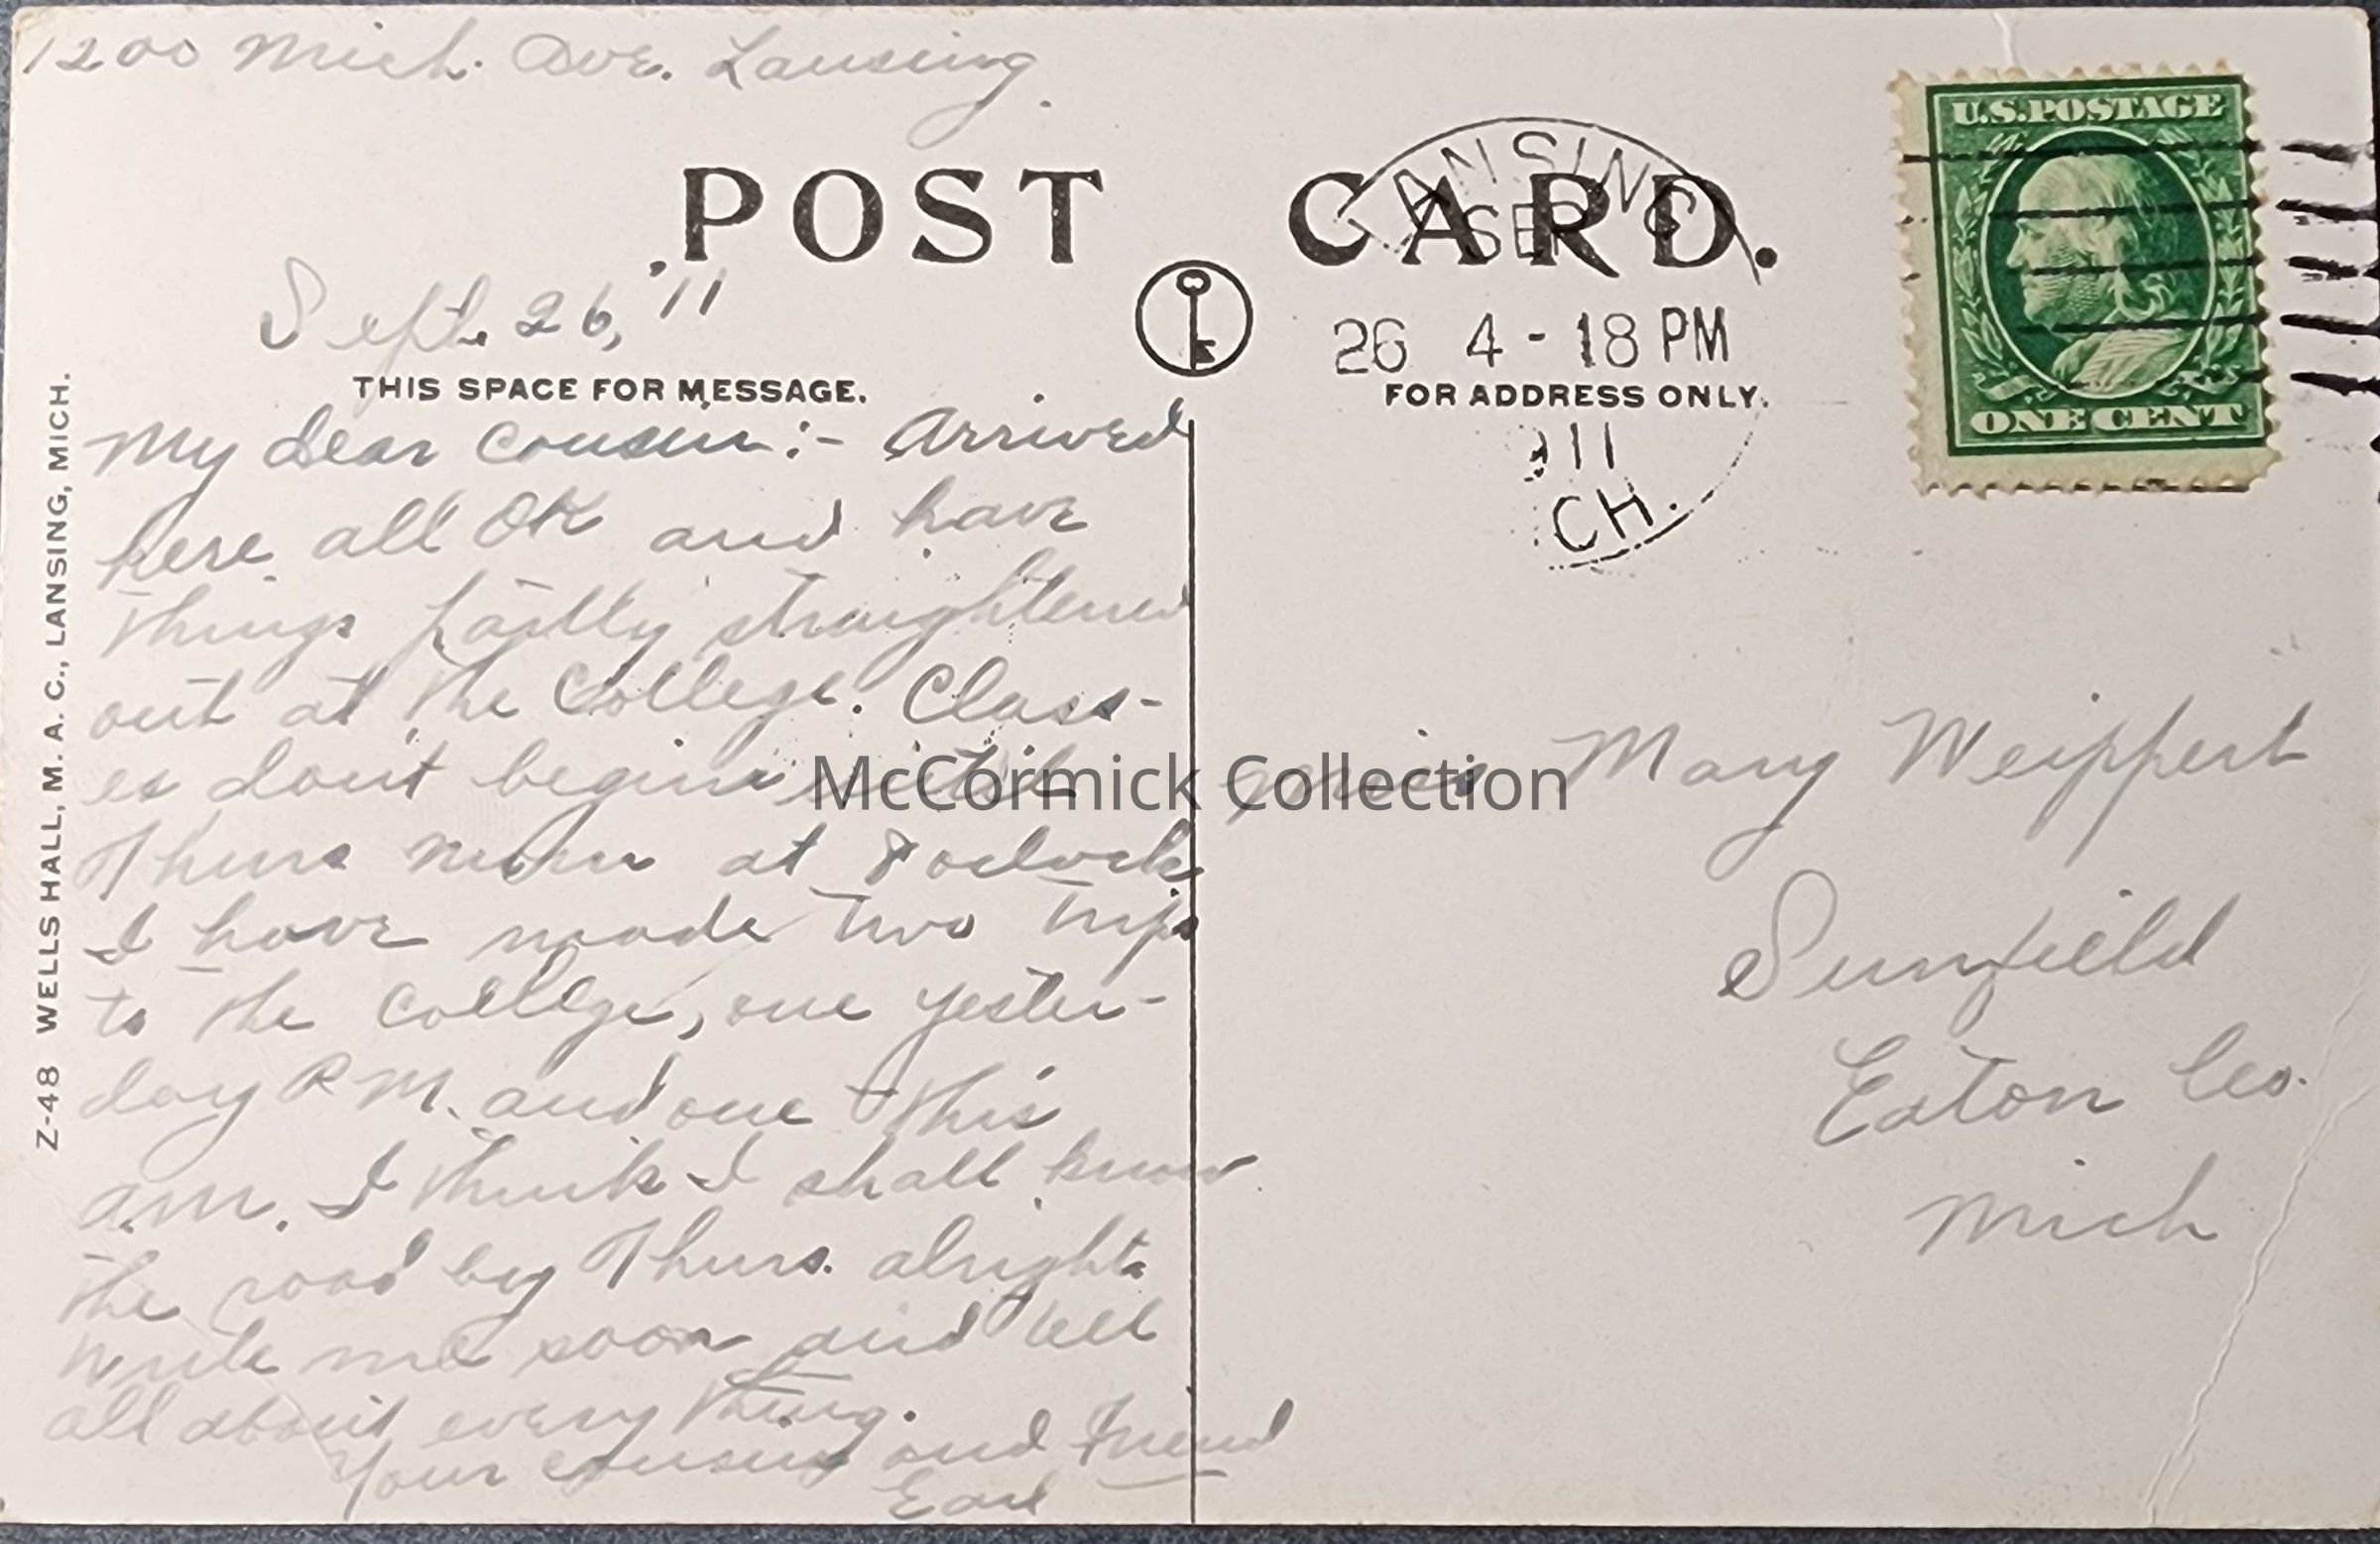 1200 Mich. Ave. Lansing.
POST CARD.
LANSING
SEP
26 4-18 PM
11
CH.
U.S. POSTAGE
ONE CENT
Sept. 26, '11
THIS SPACE FOR MESSAGE.
FOR ADDRESS ONLY.
My dear cousin:- Arrived
here all OK and have
things partly straightened
out at the College. Class-
es dont begin until
Thurs morn at 8 oclock
I have made two trips
to the College, one yester-
day P.M. and one this
am. I think I shall know
the road by Thurs. alright.
Write me soon and tell
all about every thing.
Your cousin and Friend
Earl
Miss Mary Weippert
Sunfield
Eaton Co.
Mich
Z-48 WELLS HALL, M. A. C., LANSING, MICH.
McCormick Collection